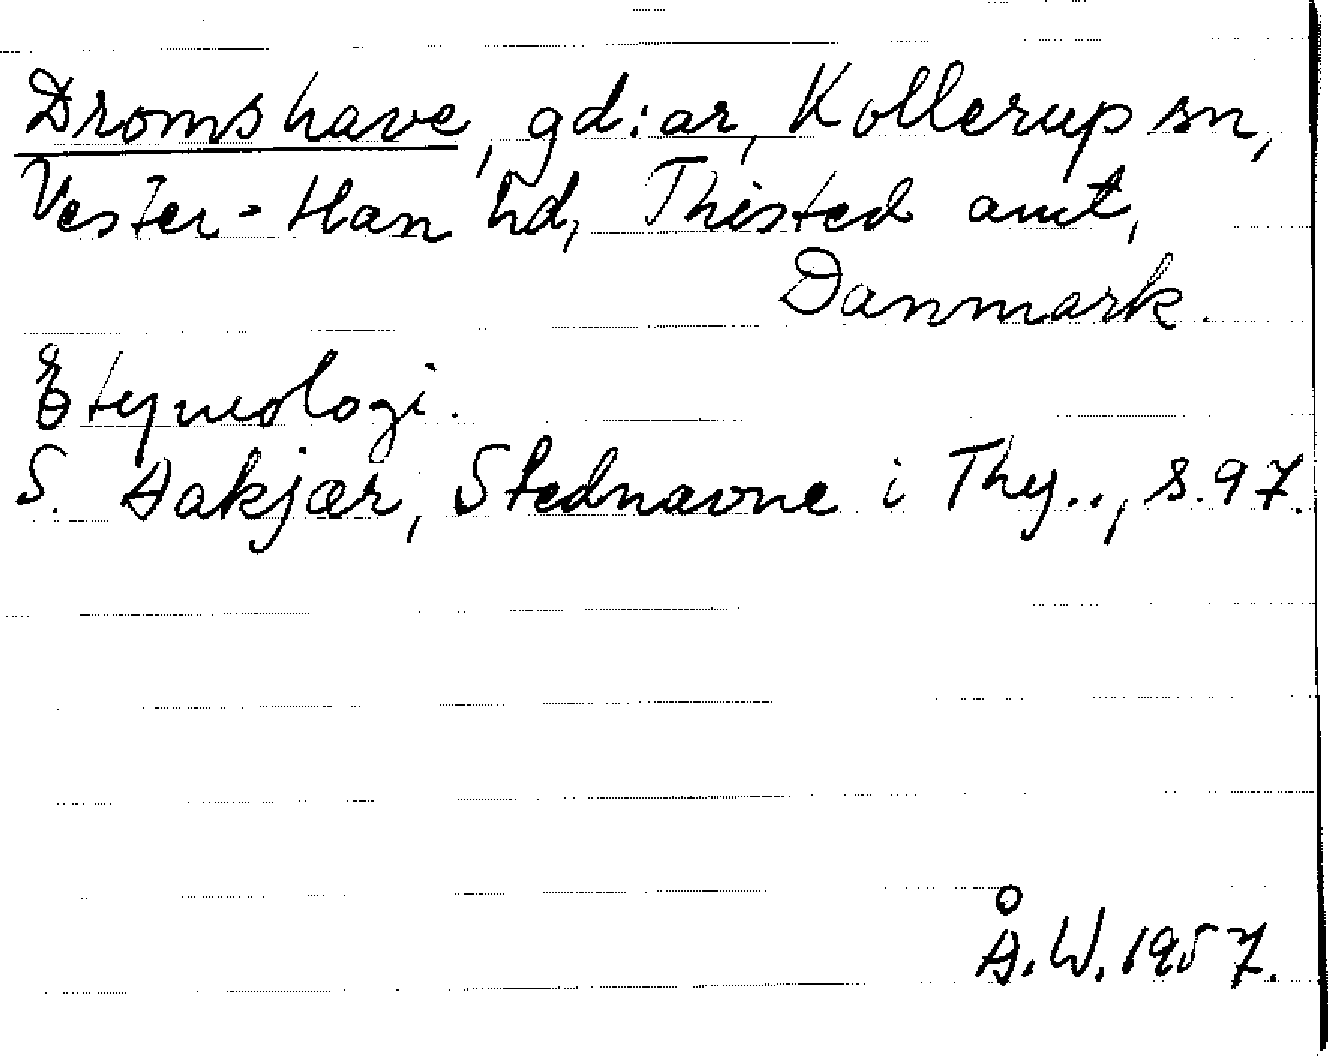 Dromshave, gd:ar, Kollerup sn,
Vester-Han hd, Thisted amt,
Danmark.
Etymologi.
S. Aakjær, Stednavne i Thy.., s.97.
Å.W.1957.